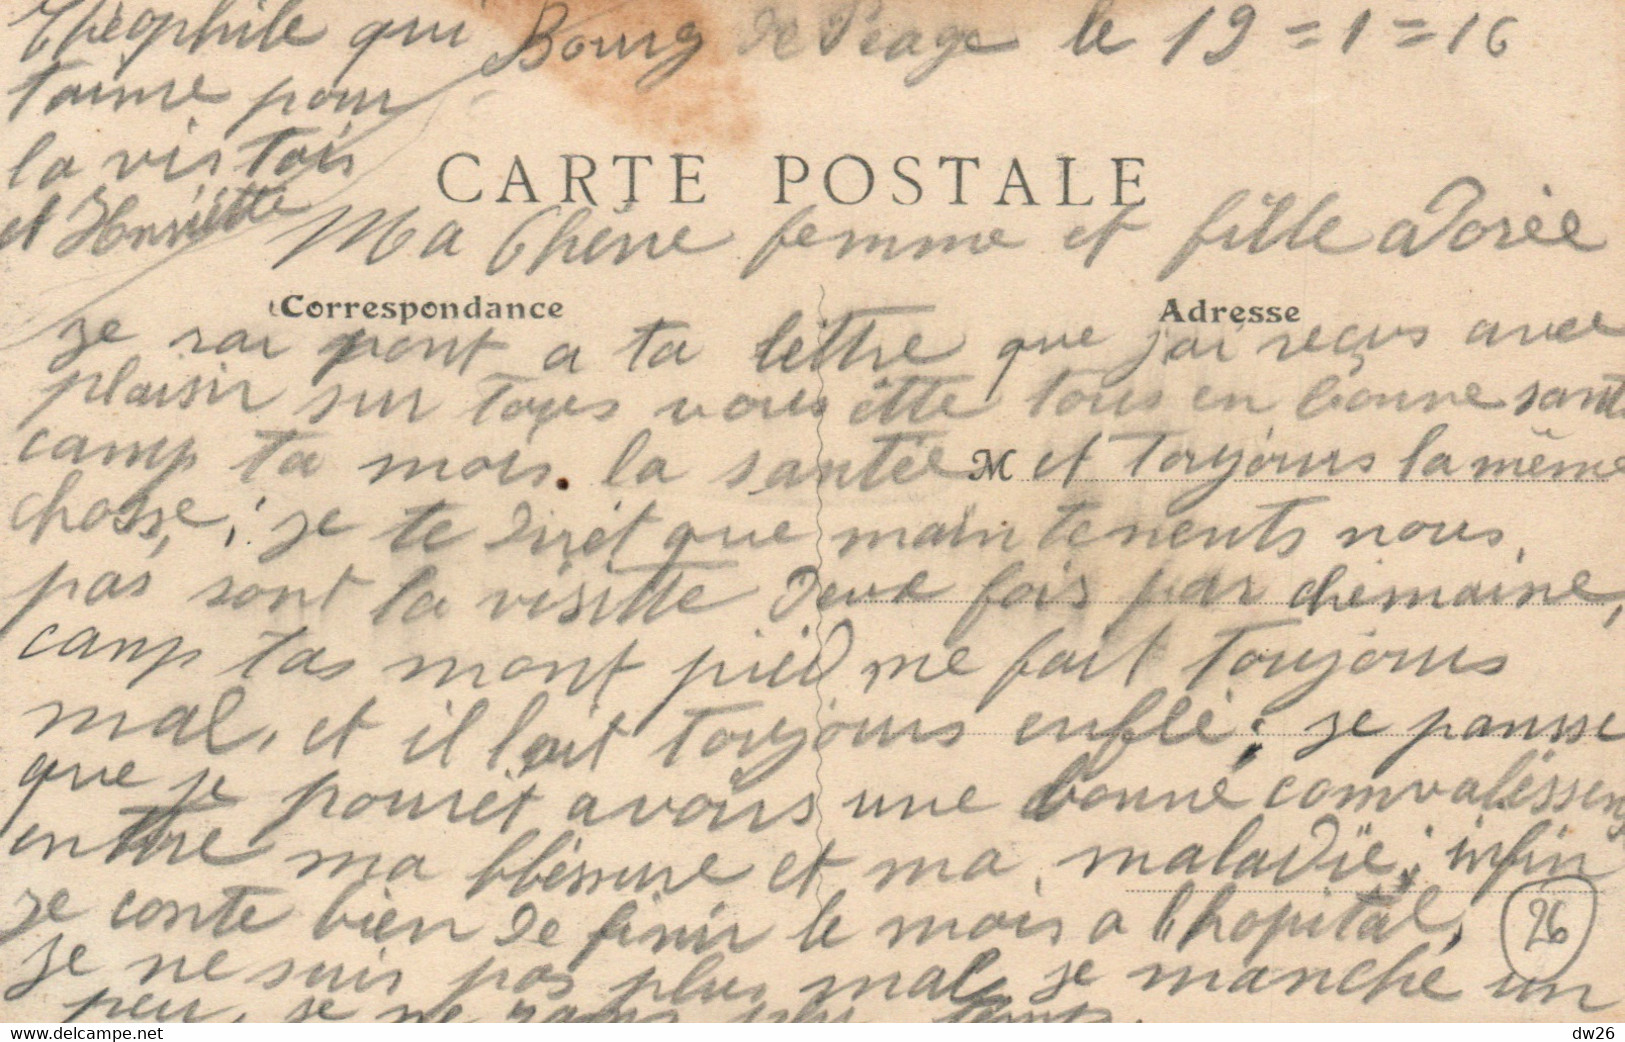 Théophile qui
taime pour
la vis tois
et Henriette
Bourg de Péage le 19=1=16
CARTE POSTALE
Ma Chère femme et fille adorèe
Correspondance
Adresse
je rai pont a ta lettre que j'ai reçus avec
plaisir sur tous vous ètte tous en bonne sant
camp ta mois. la santée M et toujours la même
chosse, je te dirèt que maintenents nous
pas sont la visitte deux fois par chemaine,
camp tas mont pied me fait toujours
mal, et il lait toujours enflé; je pansse
que je pourèt avoirs une bonne comvalèssen
enttre ma blèssure et ma maladie; infin
je conte bien de finir le mois a l'hopital,
26
je ne suis pas plus mal je manche un
peu, je ne plus temps
dw26